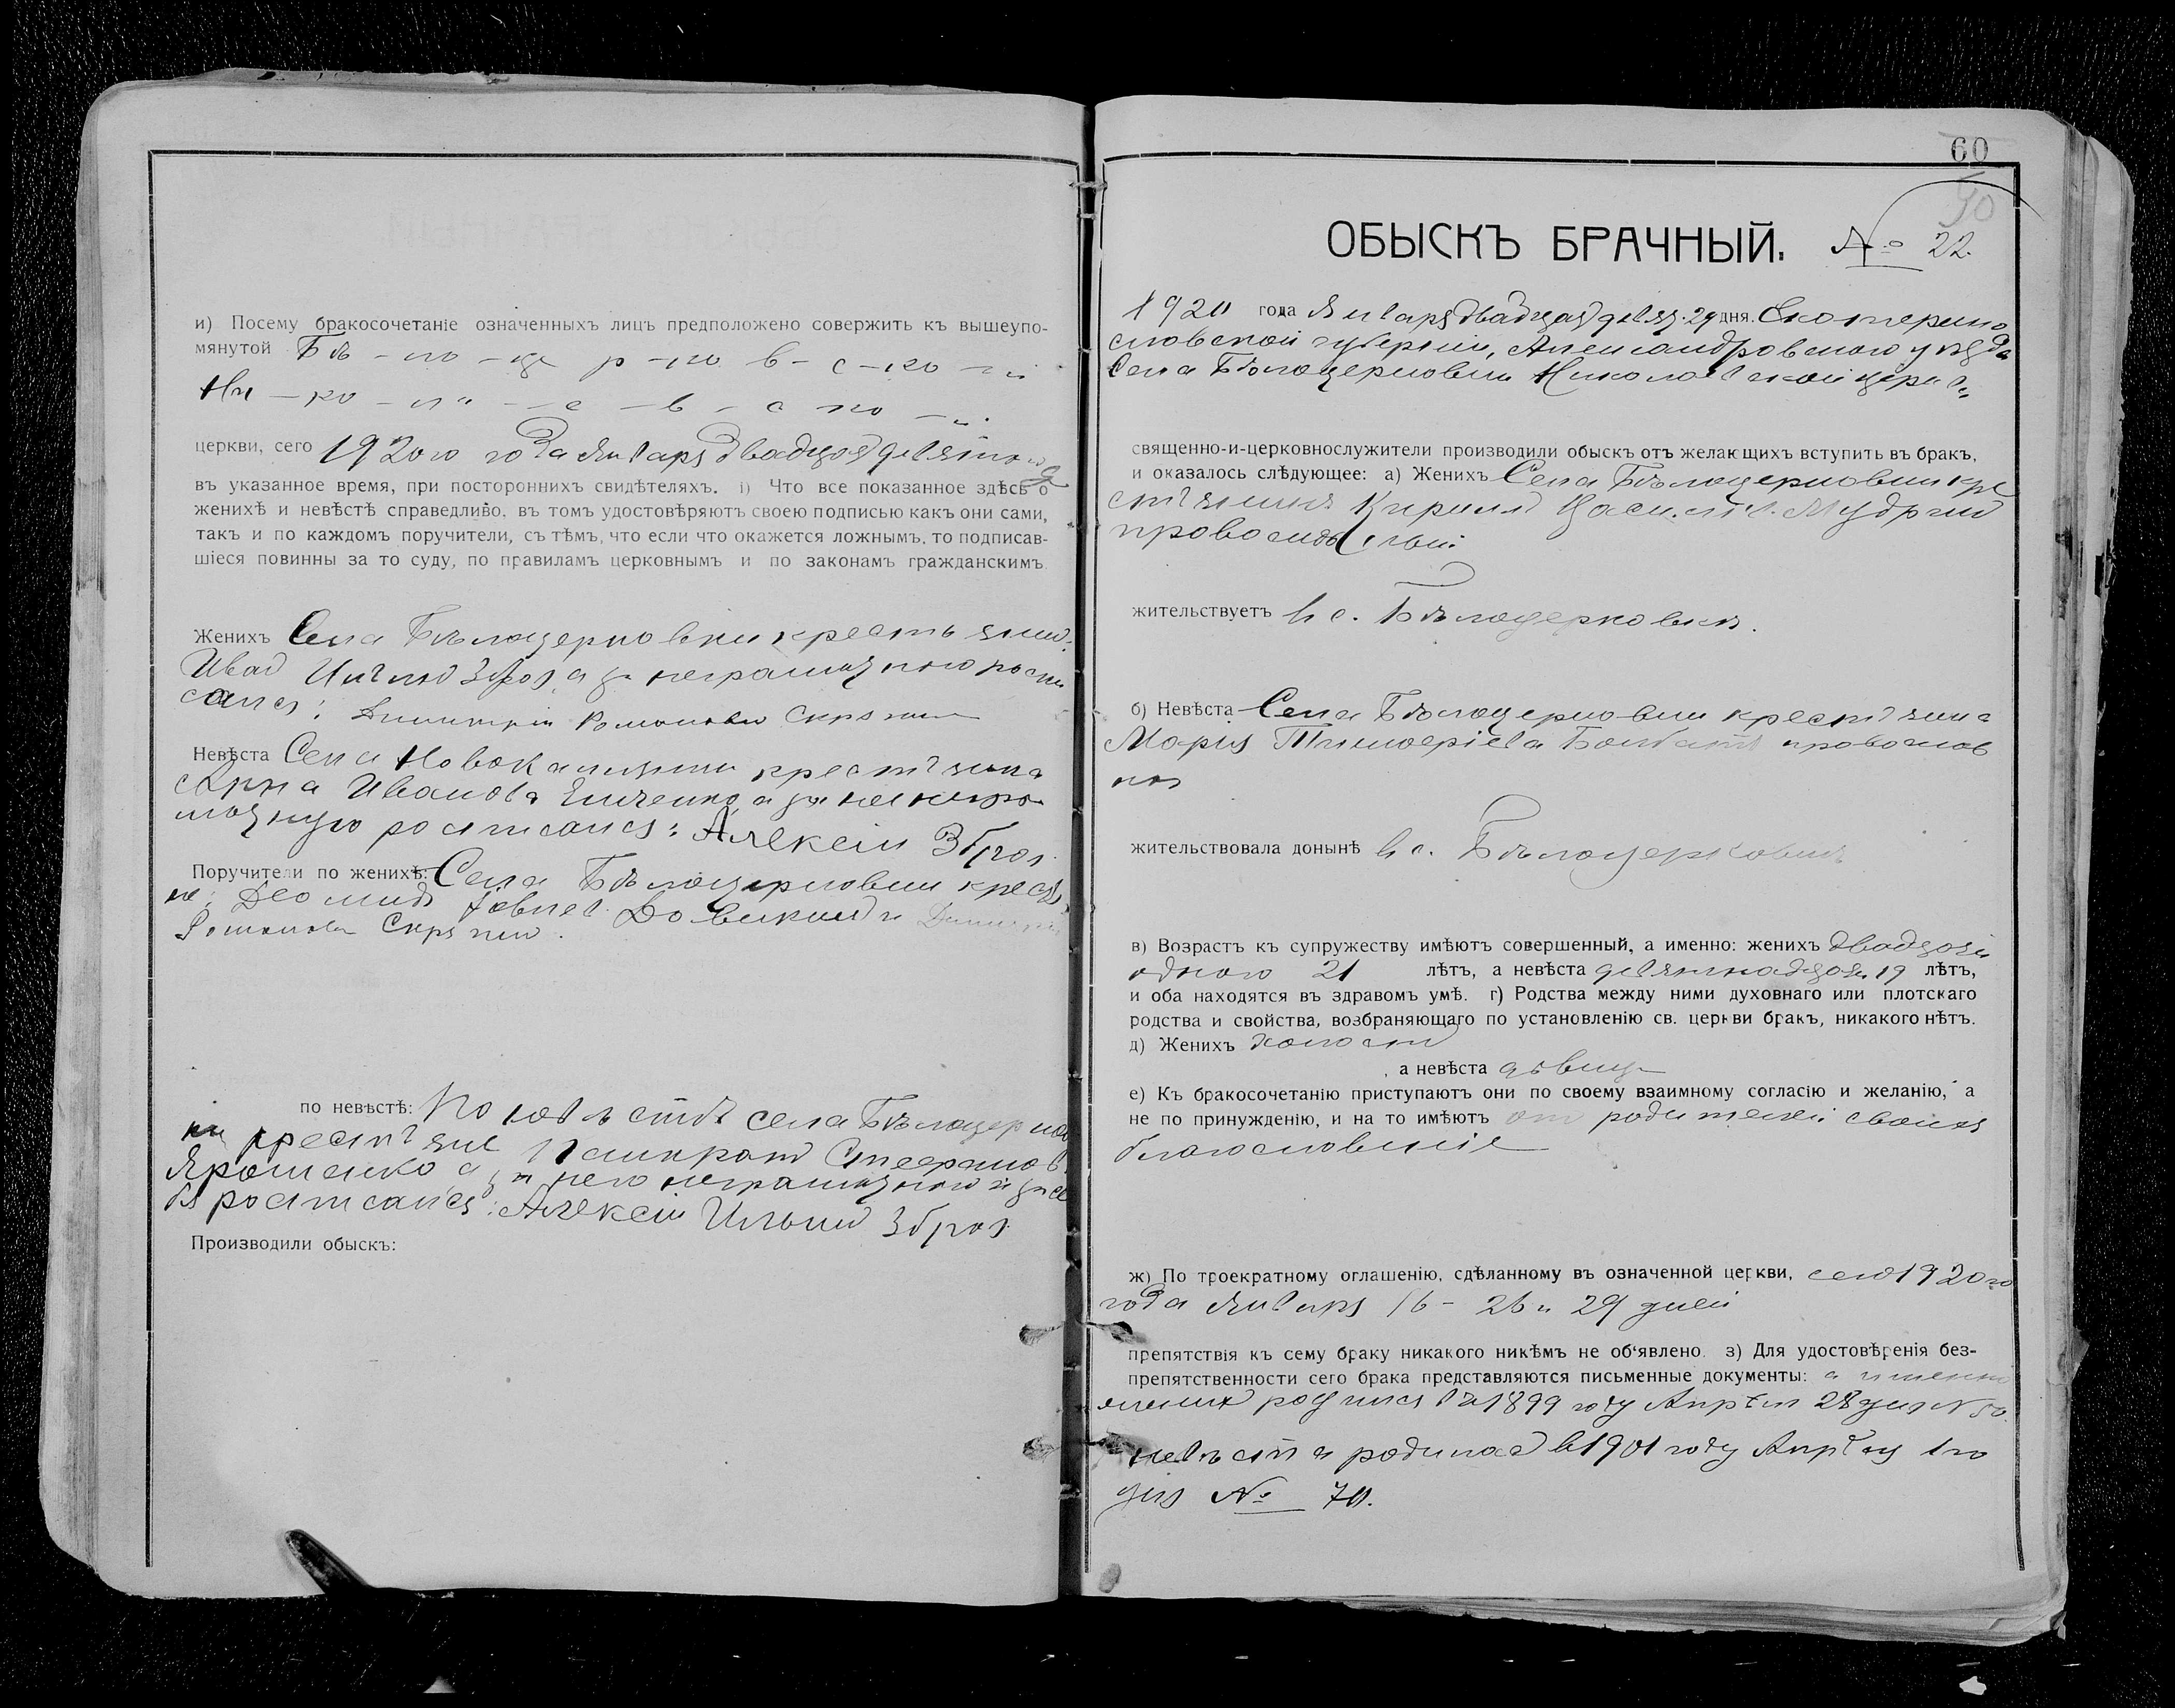 и) Посему бракосочетаніе означенныхъ лицъ предположено совержить къ вышеупо-
мянутой Бѣ - ло - це р - ко в - с - ко - й
Ни - ко - ла - е - в - с ко - й
церкви, сего 1920го года Января двадцать девятого
въ указанное время, при постороннихъ свидѣтеляхъ. і) Что все показанное здѣсь о
женихѣ и невѣстѣ справедливо, въ томъ удостовѣряютъ своею подписью какъ они сами,
такъ и по каждомъ поручители, съ тѣмъ, что если что окажется ложнымъ, то подписав-
шіеся повинны за то суду, по правиламъ церковнымъ и по законамъ гражданскимъ.
Женихъ Села Бѣлоцерковки крестьянин
Иван Зброя, а за неграмотного роспи
сался: Димитрій Романовъ
Невѣста Села крестьянка
Анна Иванова а за нее негра
мотную росписался: Алексѣй Зброя
Поручители по женихѣ: Села Бѣлоцерковки крестья
не: Деомид и
Романовъ
по невѣстѣ: По невѣстѣ села Бѣлоцерков
ки крестьяне Панкрат Стефанов
Ярошенко а за него неграмотного и за се
бя росписался: Алексѣй Ильин Зброя
Производили обыскъ:
60
ОБЫСКЪ БРАЧНЫЙ. № 22.
1920 года Января двадцать девят. 29 дня. Екатерино
славской губерніи, Александровского уѣзда
Села Бѣлоцерковки Николаевской церкви
священно-и-церковнослужители производили обыскъ отъ желающихъ вступить въ бракъ,
и оказалось слѣдующее: а) Женихъ Села Бѣлоцерковки кре
стьянинъ Кирилл Васильев Мудрий
православный
жительствуетъ в с. Бѣлоцерковкѣ.
б) Невѣста Села Бѣлоцерковки крестьянка
Марія православ
ная
жительствовала донынѣ в с. Бѣлоцерковкѣ
в) Возрастъ къ супружеству имѣютъ совершенный, а именно: женихъ двадцати
одного 21 лѣтъ, а невѣста девятнадцати 19 лѣтъ,
и оба находятся въ здравомъ умѣ. г) Родства между ними духовнаго или плотскаго
родства и свойства, возбраняющаго по установленію св. церкви бракъ, никакого нѣтъ.
д) Женихъ холост
, а невѣста дѣвица
е) Къ бракосочетанію приступаютъ они по своему взаимному согласію и желанію, а
не по принужденію, и на то имѣютъ от родителей своих
благословеніе
ж) По троекратному оглашенію, сдѣланному въ означенной церкви, сего 1920го
года Января 16 - 26 и 29 дней
препятствія къ сему браку никакого никѣмъ не об‘явлено. з) Для удостовѣренія без-
препятственности сего брака представляются письменные документы: а именно
жених родился в 1899 году Апрѣля 28 дня № 50.
невѣста родилас в 1901 году Апрѣля 1го
дня № 70.